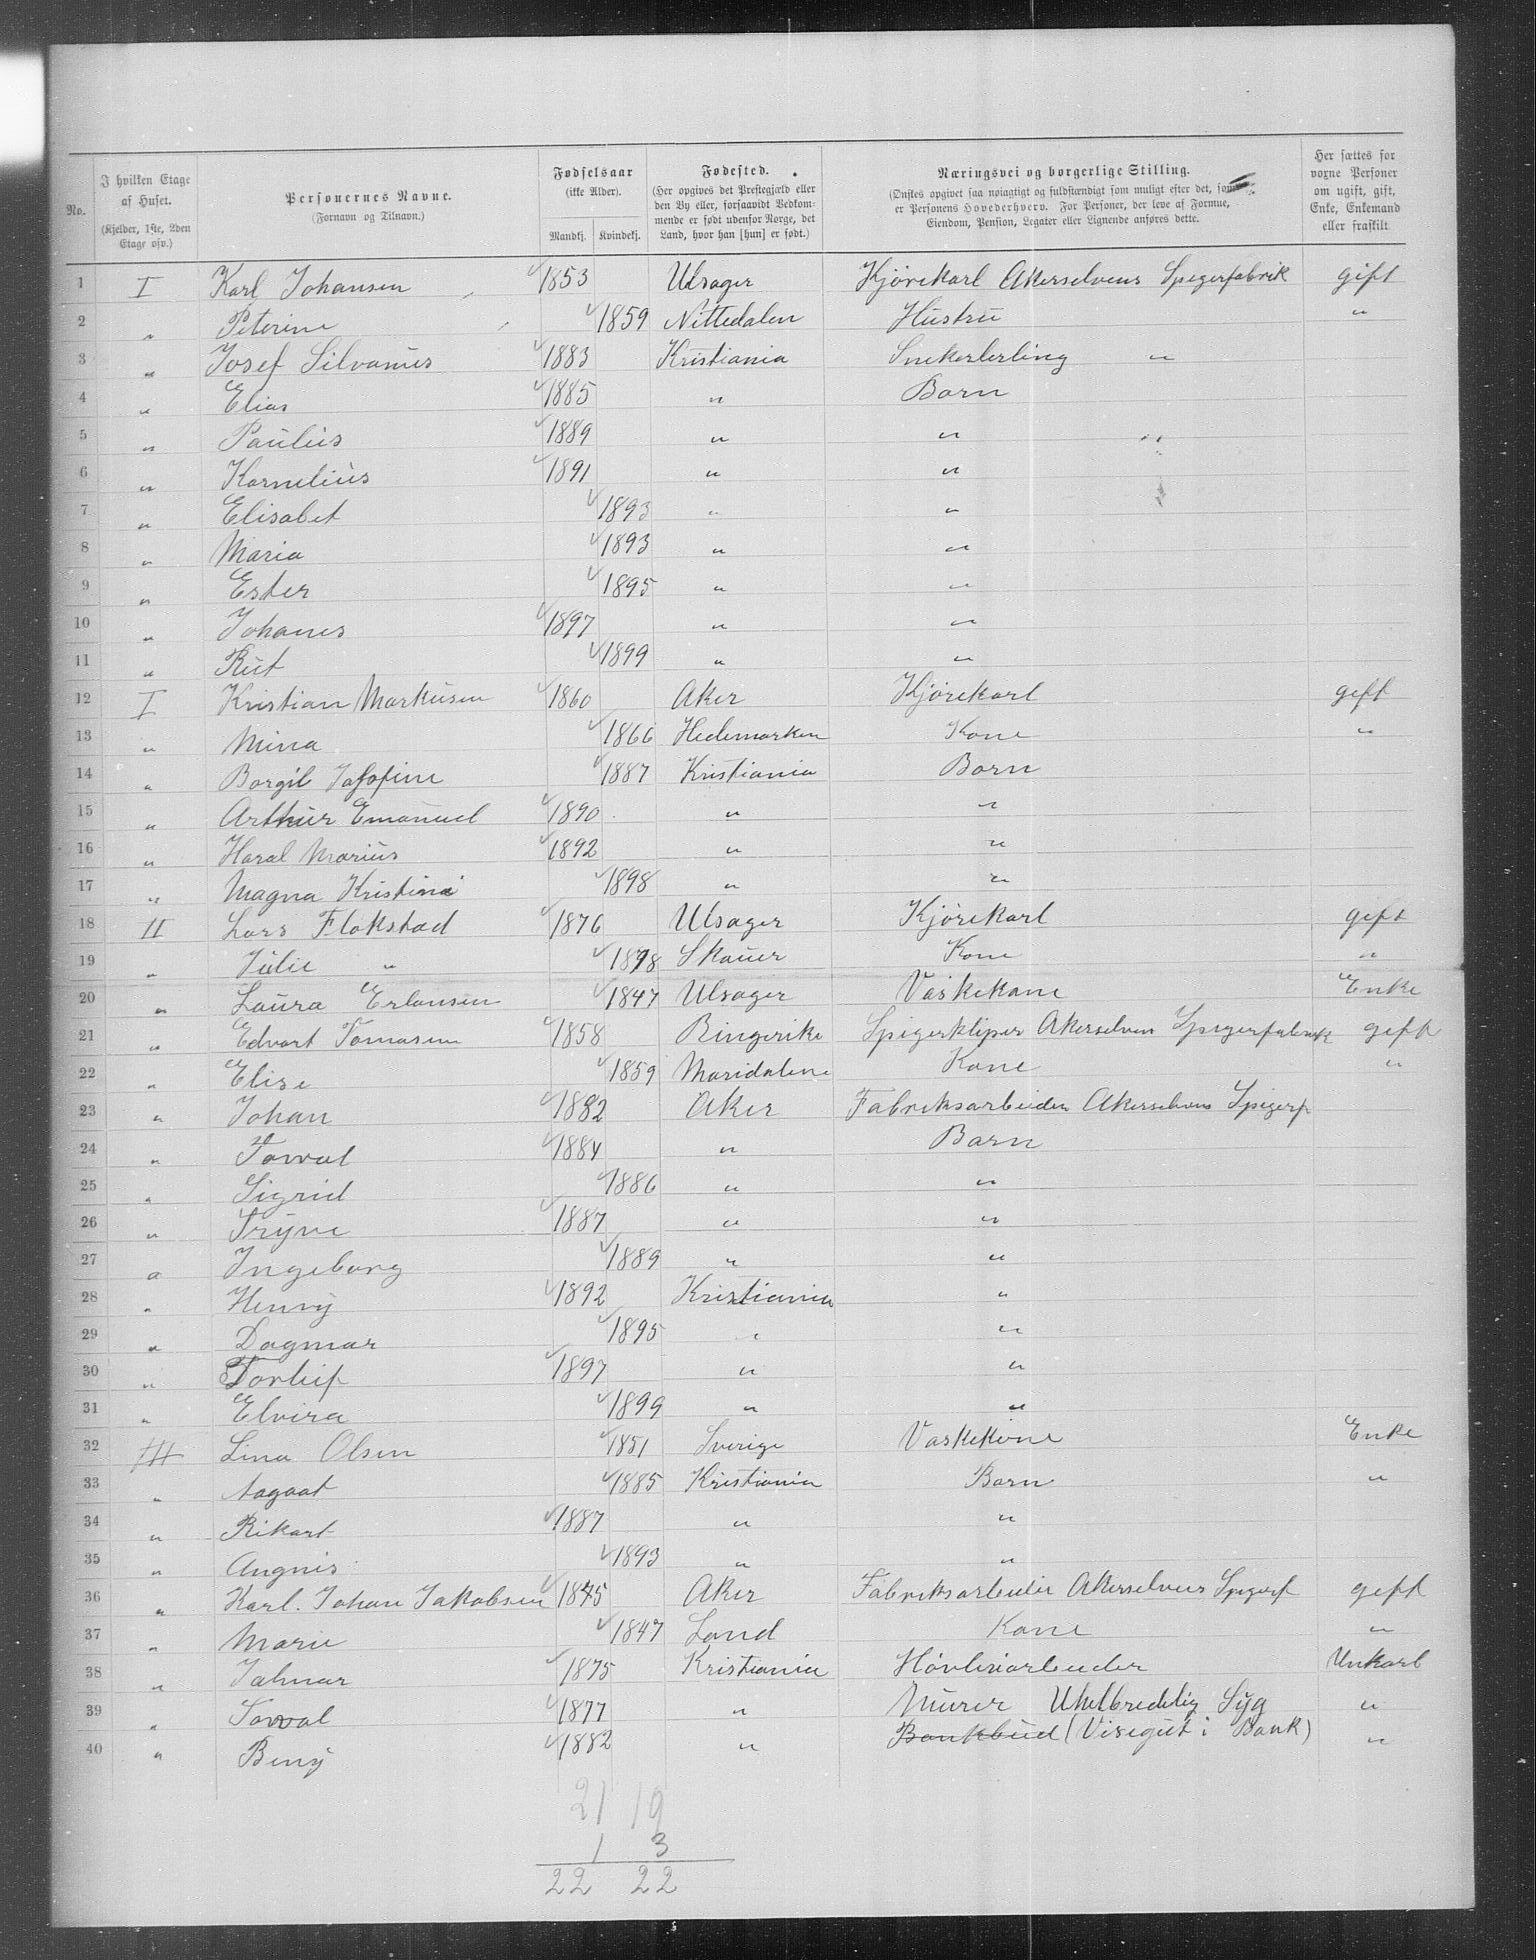 No. | I hvilken Etage af Huset. (Kjelder, 1ste, 2den Etage osv.) | Personernes Navne. (Fornavn og Tilnavn.) | Fødselsaar (ikke Alder). Mandkj. Kvindekj. | Fødested. (Her opgives det Prestegjæld eller den By eller, forsaavidt Vedkommende er født udenfor Norge, det Land, hvor han [hun] er født.) | Næringsvei og borgerlige Stilling. (Ønskes opgivet saa nøiagtigt og fuldstændigt som muligt efter det, som er Personens Hovederhverv. For Personer, der leve af Formue, Eiendom, Pension, Legater eller Lignende anføres dette. | Her sættes for voxne Personer om ugift, gift, Enke, Enkemand eller fraskilt
1 I Karl Johansen 1853 Ulsager Kjørekarl Akerselvens Spigerfabrik gift
2 " Peterine 1859 Nittedalen Hustru "
3 " Josef Silvanus 1883 Kristiania Snekerlerling "
4 " Elias 1885 " Barn
5 " Paulus 1889 " "
6 " Kornelius 1891 " "
7 " Elisabet 1893 " "
8 " Maria 1893 " "
9 " Ester 1895 " "
10 " Johanes 1897 " "
11 " Rut 1899 " "
12 I Kristian Markusen 1860 Aker Kjørekarl gift
13 " Mina 1866 Hedemarken Kone "
14 " Borgil Jossofine 1887 Kristiania Barn
15 " Arthur Emanuel 1890 " "
16 " Haral Marius 1892 " "
17 " Magna Kristina 1898 " "
18 II Lars Flokstad 1876 Ulsager Kjørekarl gift
19 " Julie " 1878 Skauer Kone "
20 " Laura Erlansen 1847 Ulsager Vaskekone Enke
21 " Edvart Tomasen 1858 Ringerike Spigerkliper Akerselven Spigerfabrik gift
22 " Elise 1859 Maridalene Kone "
23 " Johan 1882 Aker Fabriksarbeider Akerselvens Spigerf
24 " Torval 1884 " Barn
25 " Sigrid 1886 " "
26 " Trÿve 1887 " "
27 " Ingeborg 1889 " "
28 " Henrÿ 1892 Kristiania "
29 " Dagmar 1895 " "
30 " Torleif 1897 " "
31 " Elvira 1899 " "
32 III Lina Olsen 1851 Sverige Vaskekone Enke
33 " Aagaat 1885 Kristiania Barn "
34 " Rikart 1887 " "
35 " Angnis 1893 " "
36 " Karl. Johan Jakobsen 1845 Aker Fabriksarbeider Akerselvens Spigerf gift
37 " Marie 1847 Land Kone "
38 " Jalmar 1875 Kristiania Høvleriarbeider Unkarl
39 " Torval 1877 " Murer Uhelbredelig Sÿg "
40 " Benÿ 1882 " Bankbud (Visegut i Bank) "
21 19
1 3
22 22